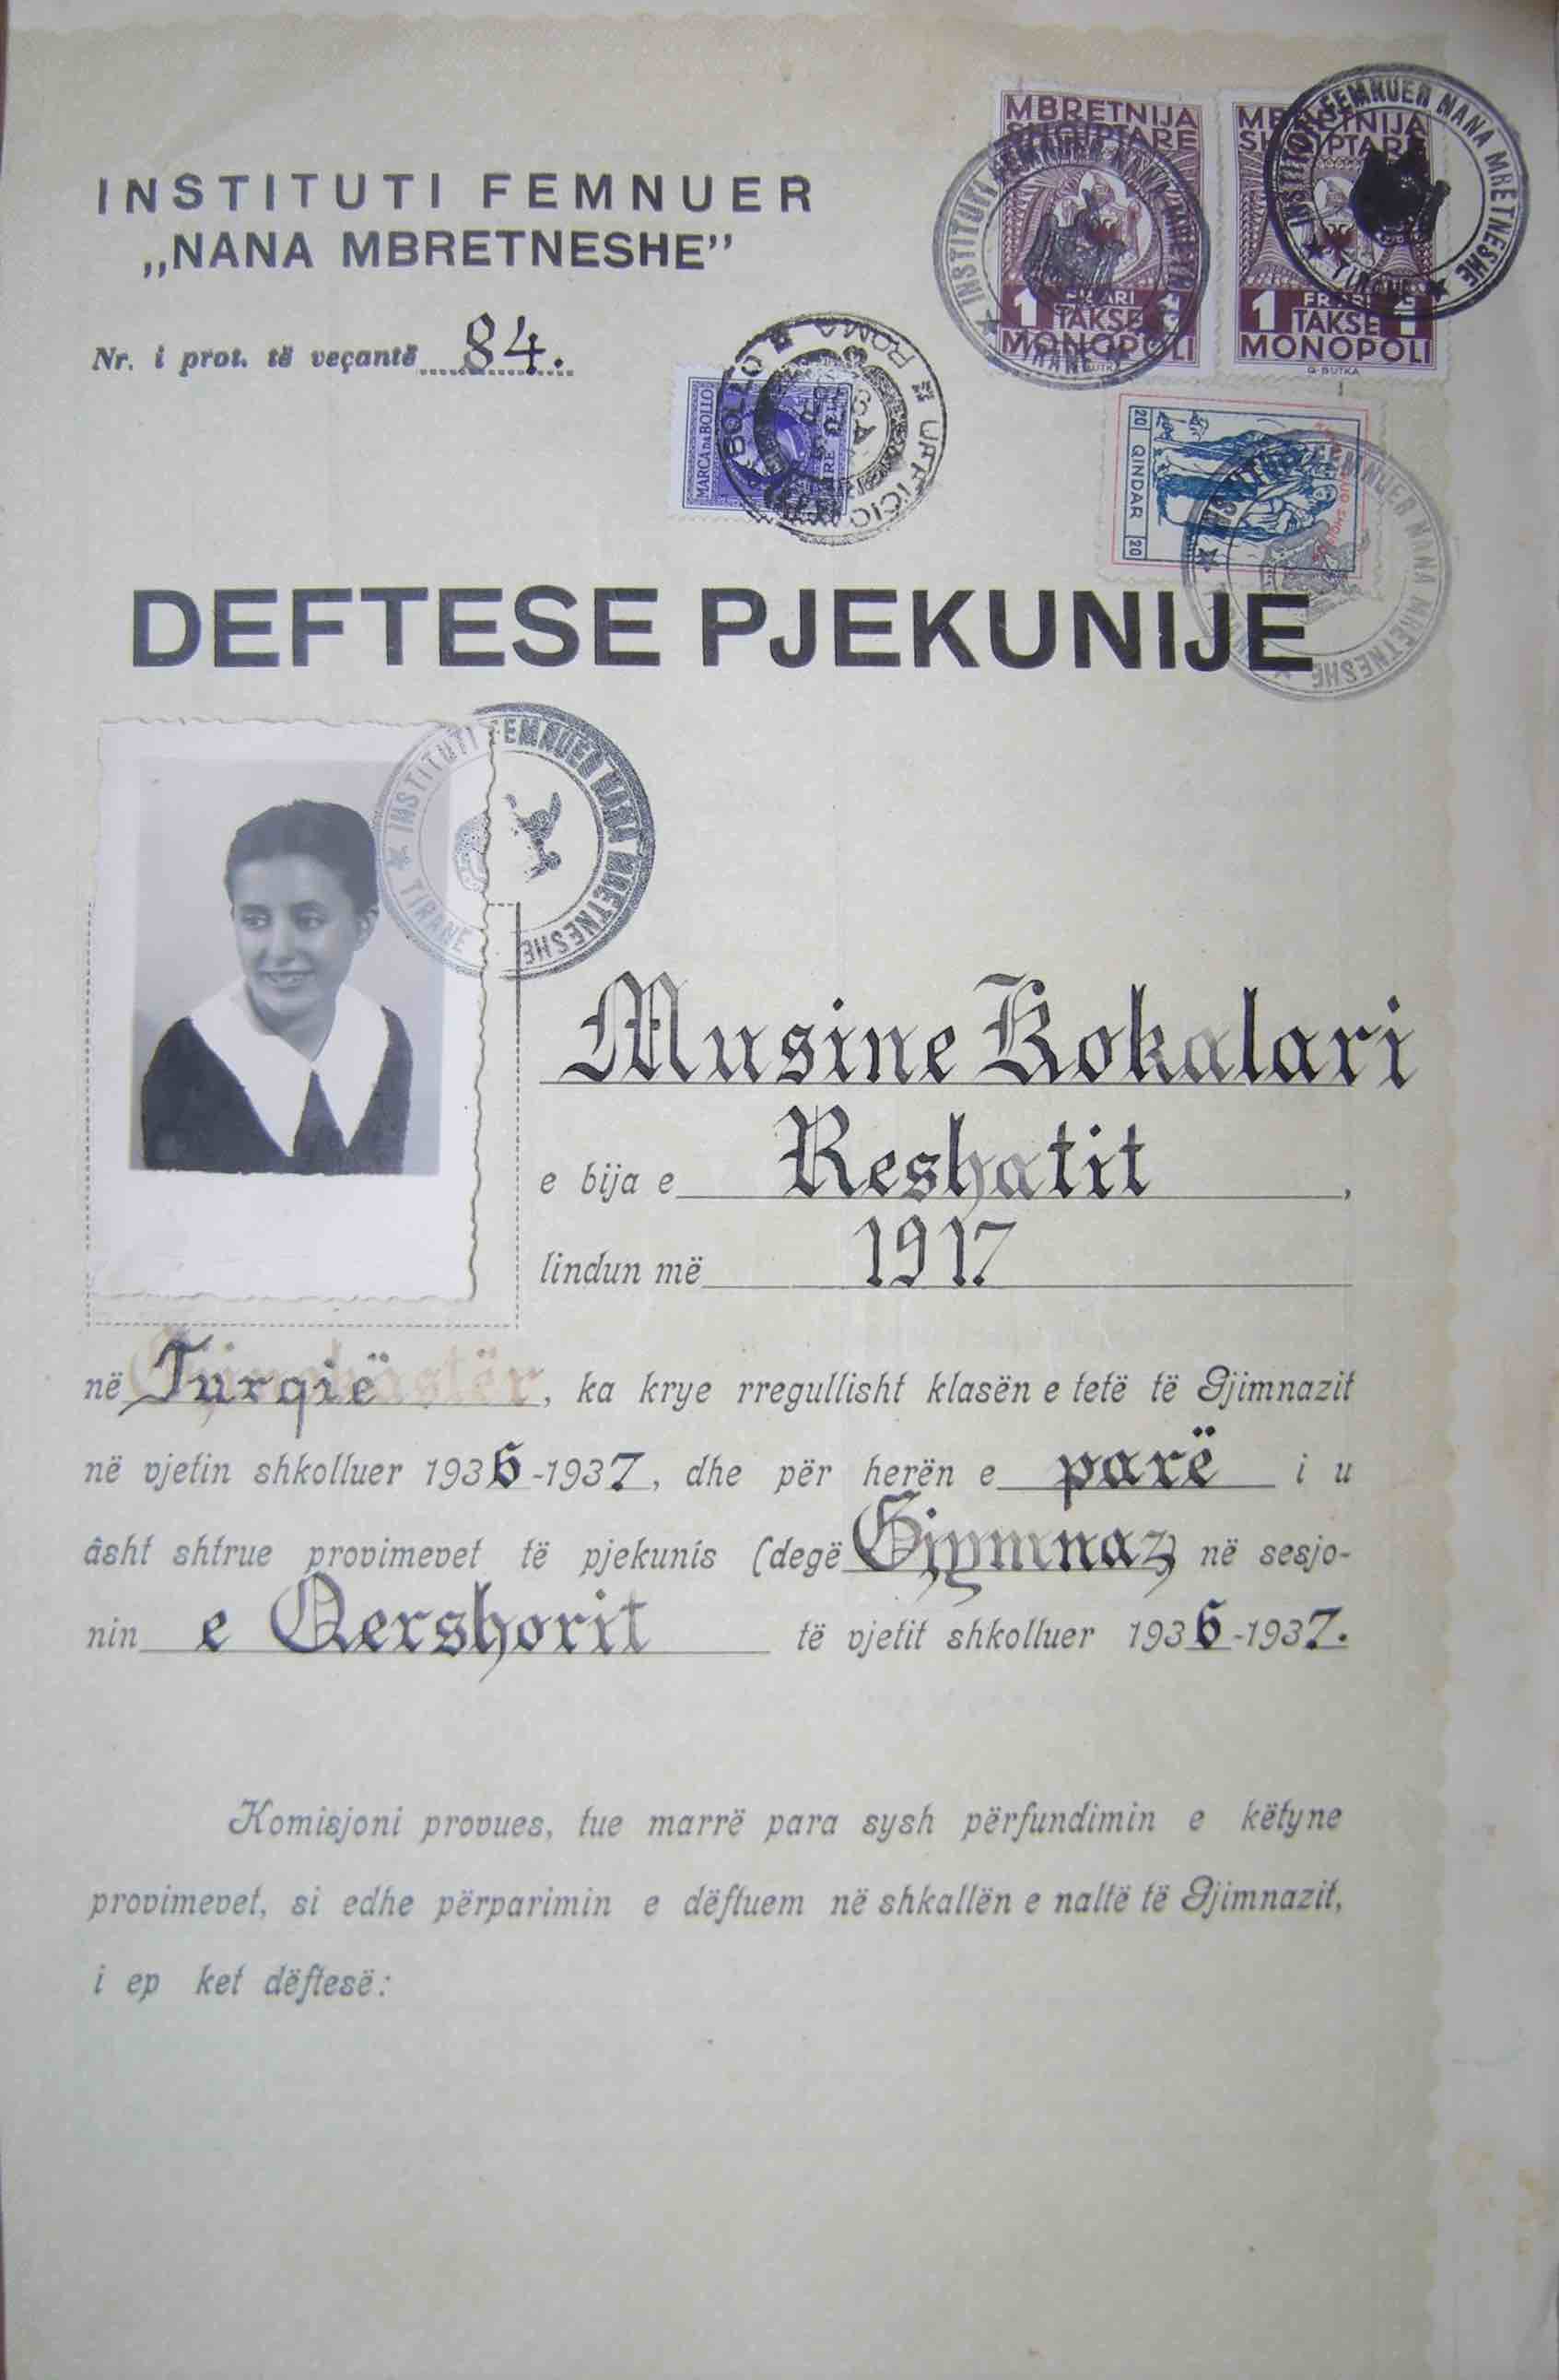 INSTITUTI FEMNUER
„NANA MBRETNESHE”
Nr. i prot. të veçantë 84.
MBRETNIJA
SHQIPTARE
1 FR. ARI 1
TAKSE
MONOPOLI
MBRETNIJA
SHQIPTARE
1 FR. ARI 1
TAKSE
MONOPOLI
G. BUTKA
INSTITUTI FEMNUER NANA MBRETNESHE
TIRANE
MARCA DA BOLLO
UFFICIO BOLLO ROMA
20 QINDAR 20
INSTITUTI FEMNUER NANA MBRETNESHE
DEFTESE PJEKUNIJE
INSTITUTI FEMNUER NANA MBRETNESHE
TIRANE
Musine Kokalari
e bija e Reshatit,
lindun më 1917
në Turqië, ka krye rregullisht klasën e tetë të Gjimnazit
në vjetin shkolluer 1936-1937, dhe për herën e parë i u
âsht shtrue provimevet të pjekunis (degë Gjymnaz në sesjo-
nin e Qershorit të vjetit shkolluer 1936-1937.
Komisjoni provues, tue marrë para sysh përfundimin e këtyne
provimevet, si edhe përparimin e dëftuem në shkallën e naltë të Gjimnazit,
i ep ket dëftesë: